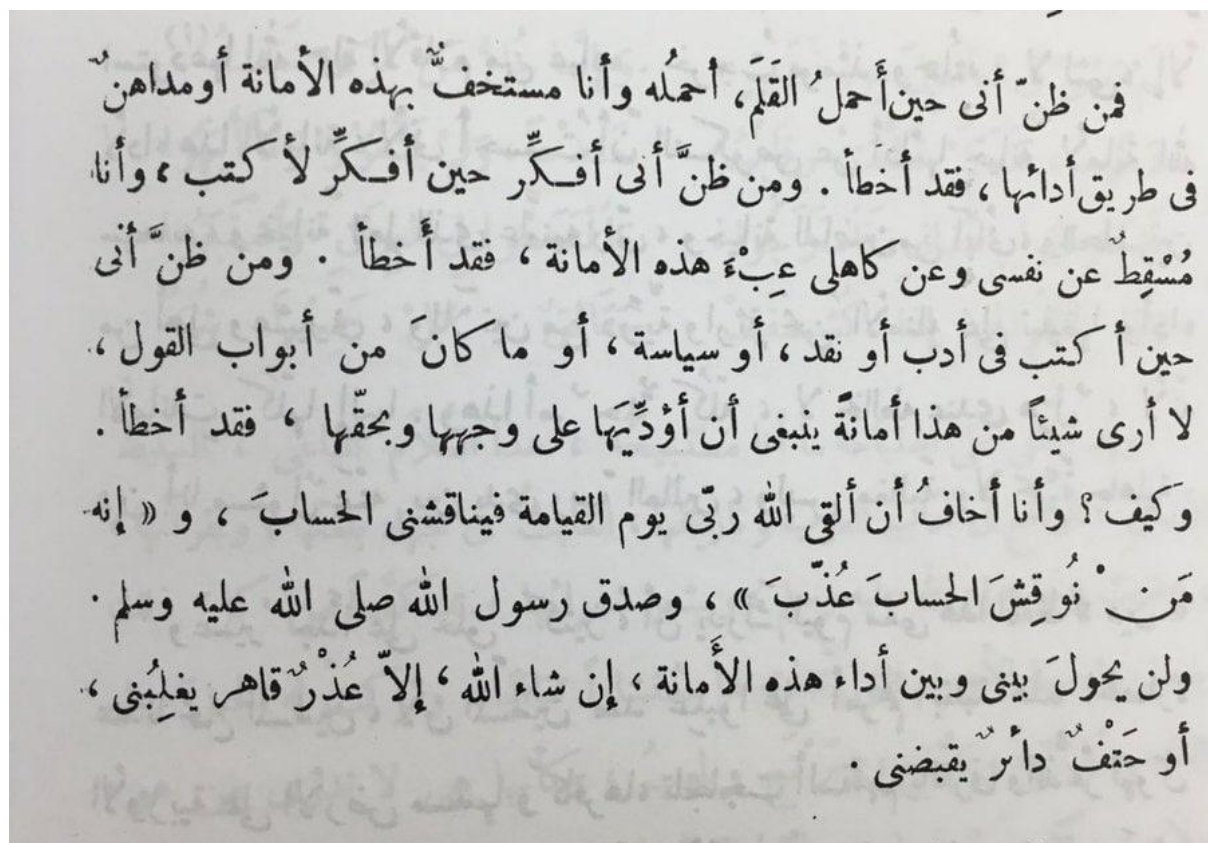 فمن ظنّ أنى حين أَحملُ القَلَمَ، أحملُه وأنا مستخفٌّ بهذه الأمانة أو مداهنٌ
فى طريق أدائها، فقد أخطأ. ومن ظنَّ أنى أفكِّر حين أفكِّر لأكتب، وأنا
مُسْقِطٌ عن نفسى وعن كاهلى عِبْءَ هذه الأمانة، فقد أَخطأ. ومن ظنَّ أنى
حين أكتب فى أدب أو نقد، أو سياسة، أو ما كانَ من أبواب القول،
لا أرى شيئاً من هذا أمانةً ينبغى أن أؤدِّيَها على وجهها وبحقّها، فقد أخطأ.
وكيف؟ وأنا أخافُ أن ألقى الله ربّى يوم القيامة فيناقشنى الحسابَ، و « إنه
مَنْ نُوقِشَ الحسابَ عُذّبَ »، وصدق رسول الله صلى الله عليه وسلم.
ولن يحولَ بينى وبين أداء هذه الأَمانة، إن شاء الله، إلاّ عُذْرٌ قاهر يغلِبُنى،
أو حَتْفٌ دائرٌ يقبضنى.